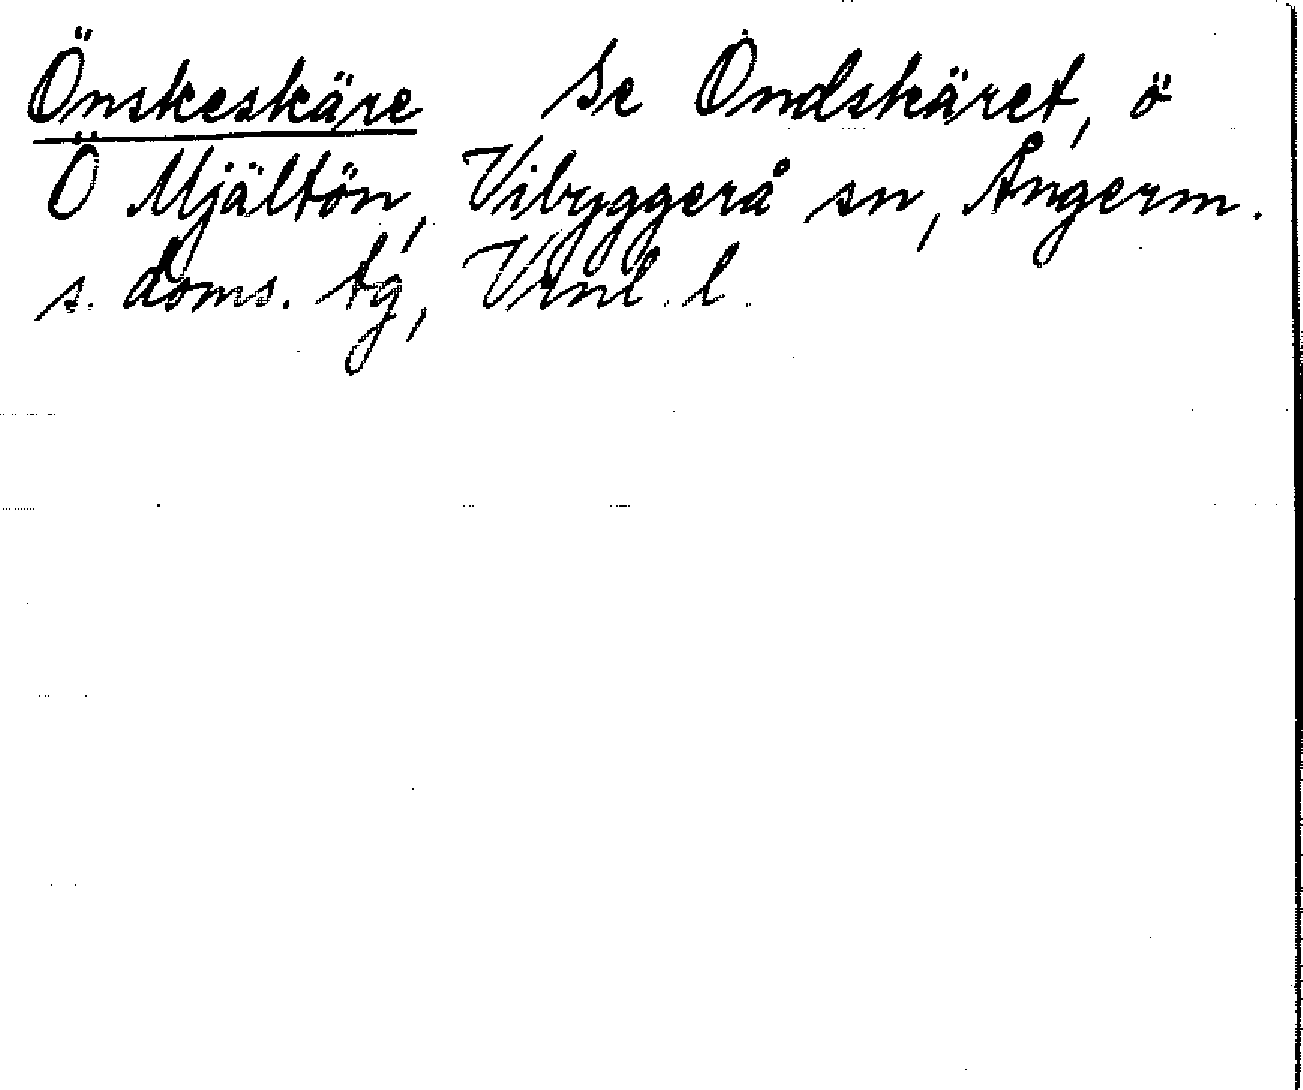 Önskeskäre Se Ondskäret, ö
Ö Mjältön, Vibyggerå sn, Ångerm.
s. doms. tg, Vrnl. l.